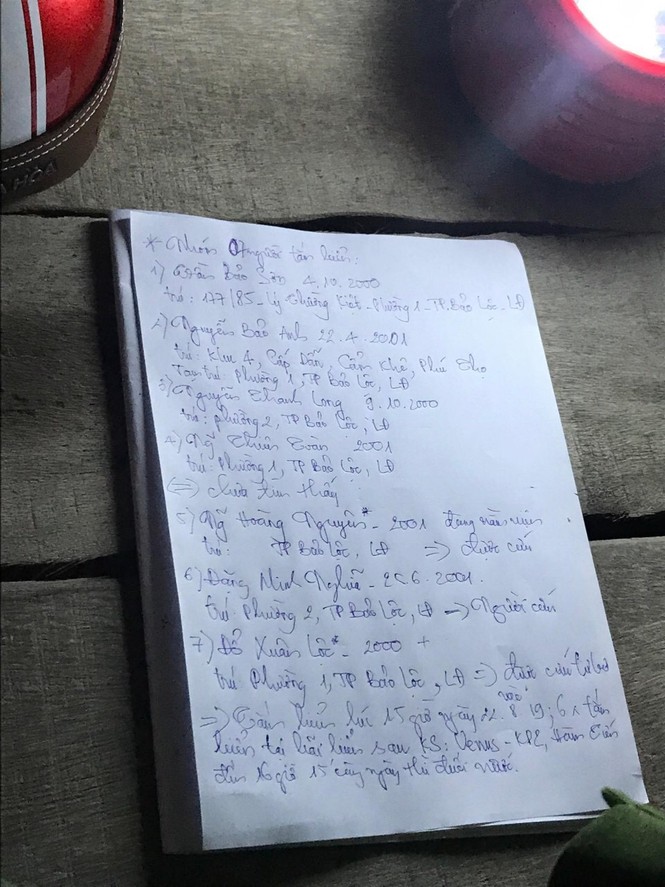 * Nhóm 07 người tắm biển:
1) Trần Bảo Sơn 4.10.2000
trú: 177/85 - Lý Thường Kiệt - Phường 1 - TP. Bảo Lộc - LĐ
2) Nguyễn Bảo Anh 22.4.2001
trú: Khu 4, Cấp Dẫn, Cẩm Khê, Phú Thọ
Tạm trú: Phường 1, TP Bảo Lộc, LĐ
3) Nguyễn Thanh Long 9.10.2000
trú: phường 2, TP Bảo Lộc, LĐ
4) Ng̃ Thiên Toàn 2001
trú: Phường 1, TP Bảo Lộc, LĐ
(=) chưa tìm thấy
5) Ng̃ Hoàng Nguyên* - 2001
trú: TP Bảo Lộc, LĐ => được cứu
6) Đặng Minh Nghĩa - 6.2001.
trú: Phường 2, TP Bảo Lộc, LĐ -> Người cứu
7) Đỗ Xuân Lộc* - 2000 +
trú: Phường 1, TP Bảo Lộc, LĐ => được cứu
=> Tắm biển lúc 15 giờ ngày 22.8.19; tắm
biển tại bãi biển sau KS: Venus - KP2, Hàm Tiến
đến 16 giờ 15' cùng ngày thì đuối nước.
AHÒA